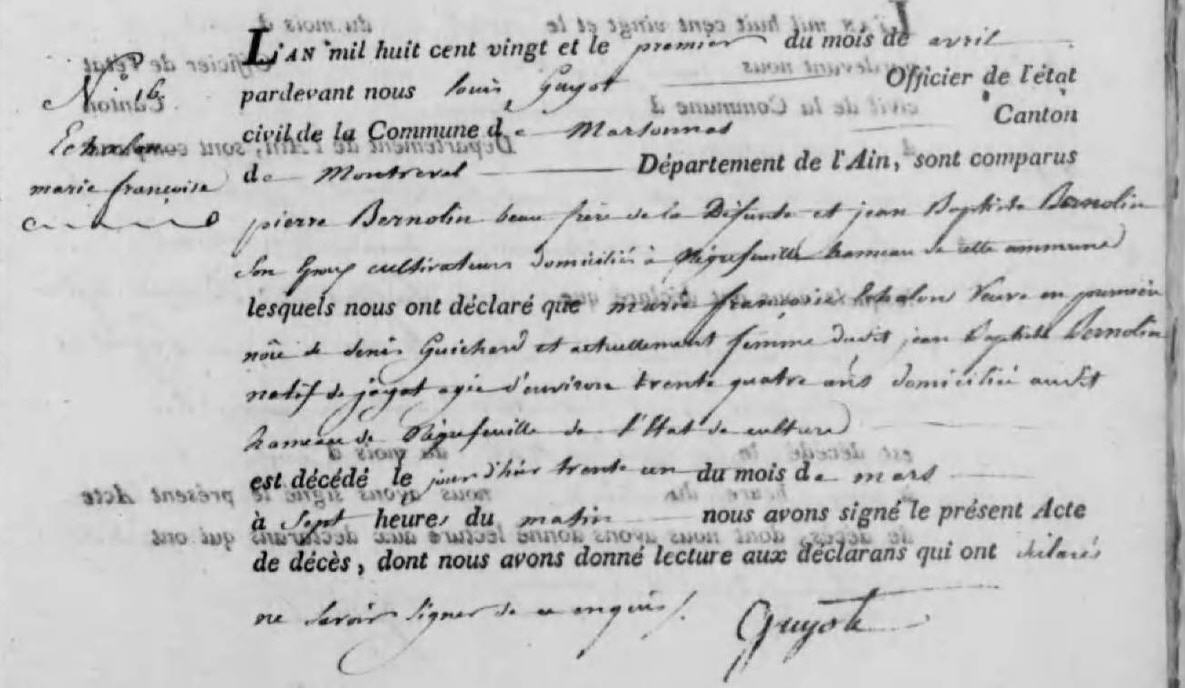 L'AN mil huit cent vingt et le premier du mois de avril
N.º 16.
pardevant nous louis Guyot Officier de l'état
civil de la Commune de Marsonnas Canton
Echalon
marie françoise
de Montrevel Département de l'Ain, sont comparus
pierre Bernolin beau frère de la Défunte et jean Baptiste Bernolin
Son Epoux cultivateurs domiciliés à hameau de cette commune
lesquels nous ont déclaré que marie françoise Echalons Veuve en premiere
nôce de denis Guichard et actuellement femme dudit jean Baptiste Bernolin
natif de jayat agée d'environ trente quatre ans domiciliée audit
hameau de de l'Etat de culture
est décédé le jour d'hier trente un du mois de mars
à Sept heures du matin nous avons signé le présent Acte
de décès, dont nous avons donné lecture aux déclarans qui ont déclarés
ne Savoir Signer de ce enquis /.
Guyot